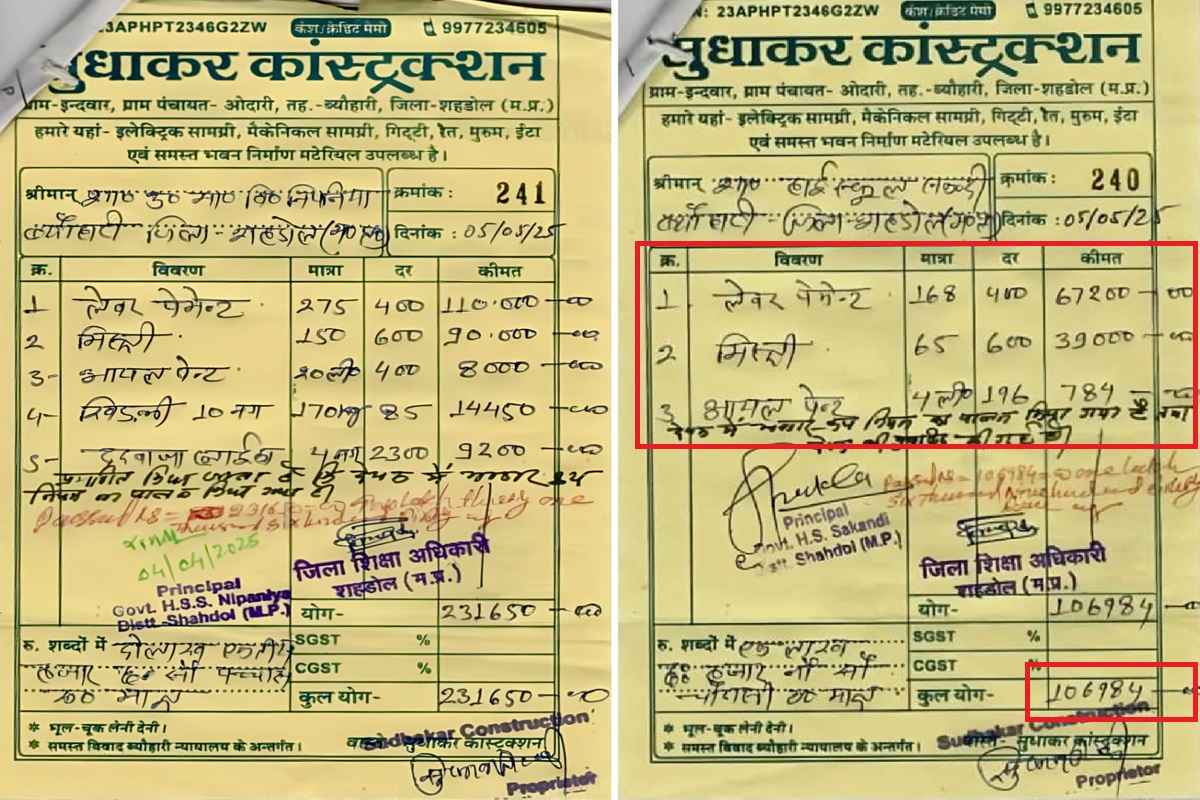 23APHPT2346G2ZW कैश/क्रेडिट मेमो 9977234605
सुधाकर कांस्ट्रक्शन
ग्राम-इन्दवार, ग्राम पंचायत- ओदारी, तह.-ब्यौहारी, जिला-शहडोल (म.प्र.)
हमारे यहां- इलेक्ट्रिक सामग्री, मैकेनिकल सामग्री, गिट्टी, रेत, मुरुम, ईटा
एवं समस्त भवन निर्माण मटेरियल उपलब्ध है।
श्रीमान् शा० उ० मा० वि० निपनिया क्रमांक : 241
जिला- शहडोल (म०प्र०) दिनांक : 05/05/25
क्र. विवरण मात्रा दर कीमत
1 लेवर पेमेन्ट 275 400 110.000-00
2 मिस्त्री 150 600 90.000-00
3- आयल पेन्ट 20ली० 400 8000-00
4- खिडकी 10 नग 170 85 14450-00
5- दरवाजा 4 नग 2300 9200-00
प्रमाणित किया जाता है कि में भण्डार
नियम का पालन किया गया है।
04/04/2025
Principal
Govt. H.S.S. Nipaniya
Distt.-Shahdol (M.P.)
जिला शिक्षा अधिकारी
शहडोल (म.प्र.)
योग- 231650-00
SGST %
CGST %
रु. शब्दों में दो लाख एकतीस
हजार छः सौ पचास
रू० मात्र कुल योग- 231650-00
* भूल-चूक लेनी देनी।
* समस्त विवाद ब्यौहारी न्यायालय के अन्तर्गत।
वास्ते- सुधाकर कांस्ट्रक्शन
Sudhakar Construction
Proprietor
N: 23APHPT2346G2ZW कैश/क्रेडिट मेमो 9977234605
सुधाकर कांस्ट्रक्शन
ग्राम-इन्दवार, ग्राम पंचायत- ओदारी, तह.-ब्यौहारी, जिला-शहडोल (म.प्र.)
हमारे यहां- इलेक्ट्रिक सामग्री, मैकेनिकल सामग्री, गिट्टी, रेत, मुरुम, ईटा
एवं समस्त भवन निर्माण मटेरियल उपलब्ध है।
श्रीमान् शा० हाई स्कूल सकन्दी क्रमांक : 240
जिला- शहडोल (म०प्र०) दिनांक : 05/05/25
क्र. विवरण मात्रा दर कीमत
1 लेवर पेमेन्ट 168 400 67200-00
2 मिस्त्री 65 600 39000-00
3 आयल पेन्ट 4 ली० 196 784-00
Principal
Govt. H.S. Sakandi
Distt. Shahdol (M.P.)
जिला शिक्षा अधिकारी
शहडोल (म.प्र.)
योग- 106984-00
SGST %
CGST %
रु. शब्दों में एक लाख
छः हजार नौ सौ
चौरासी रू० मात्र कुल योग- 106984-00
* भूल-चूक लेनी देनी।
* समस्त विवाद ब्यौहारी न्यायालय के अन्तर्गत।
वास्ते- सुधाकर कांस्ट्रक्शन
Sudhakar Construction
Proprietor